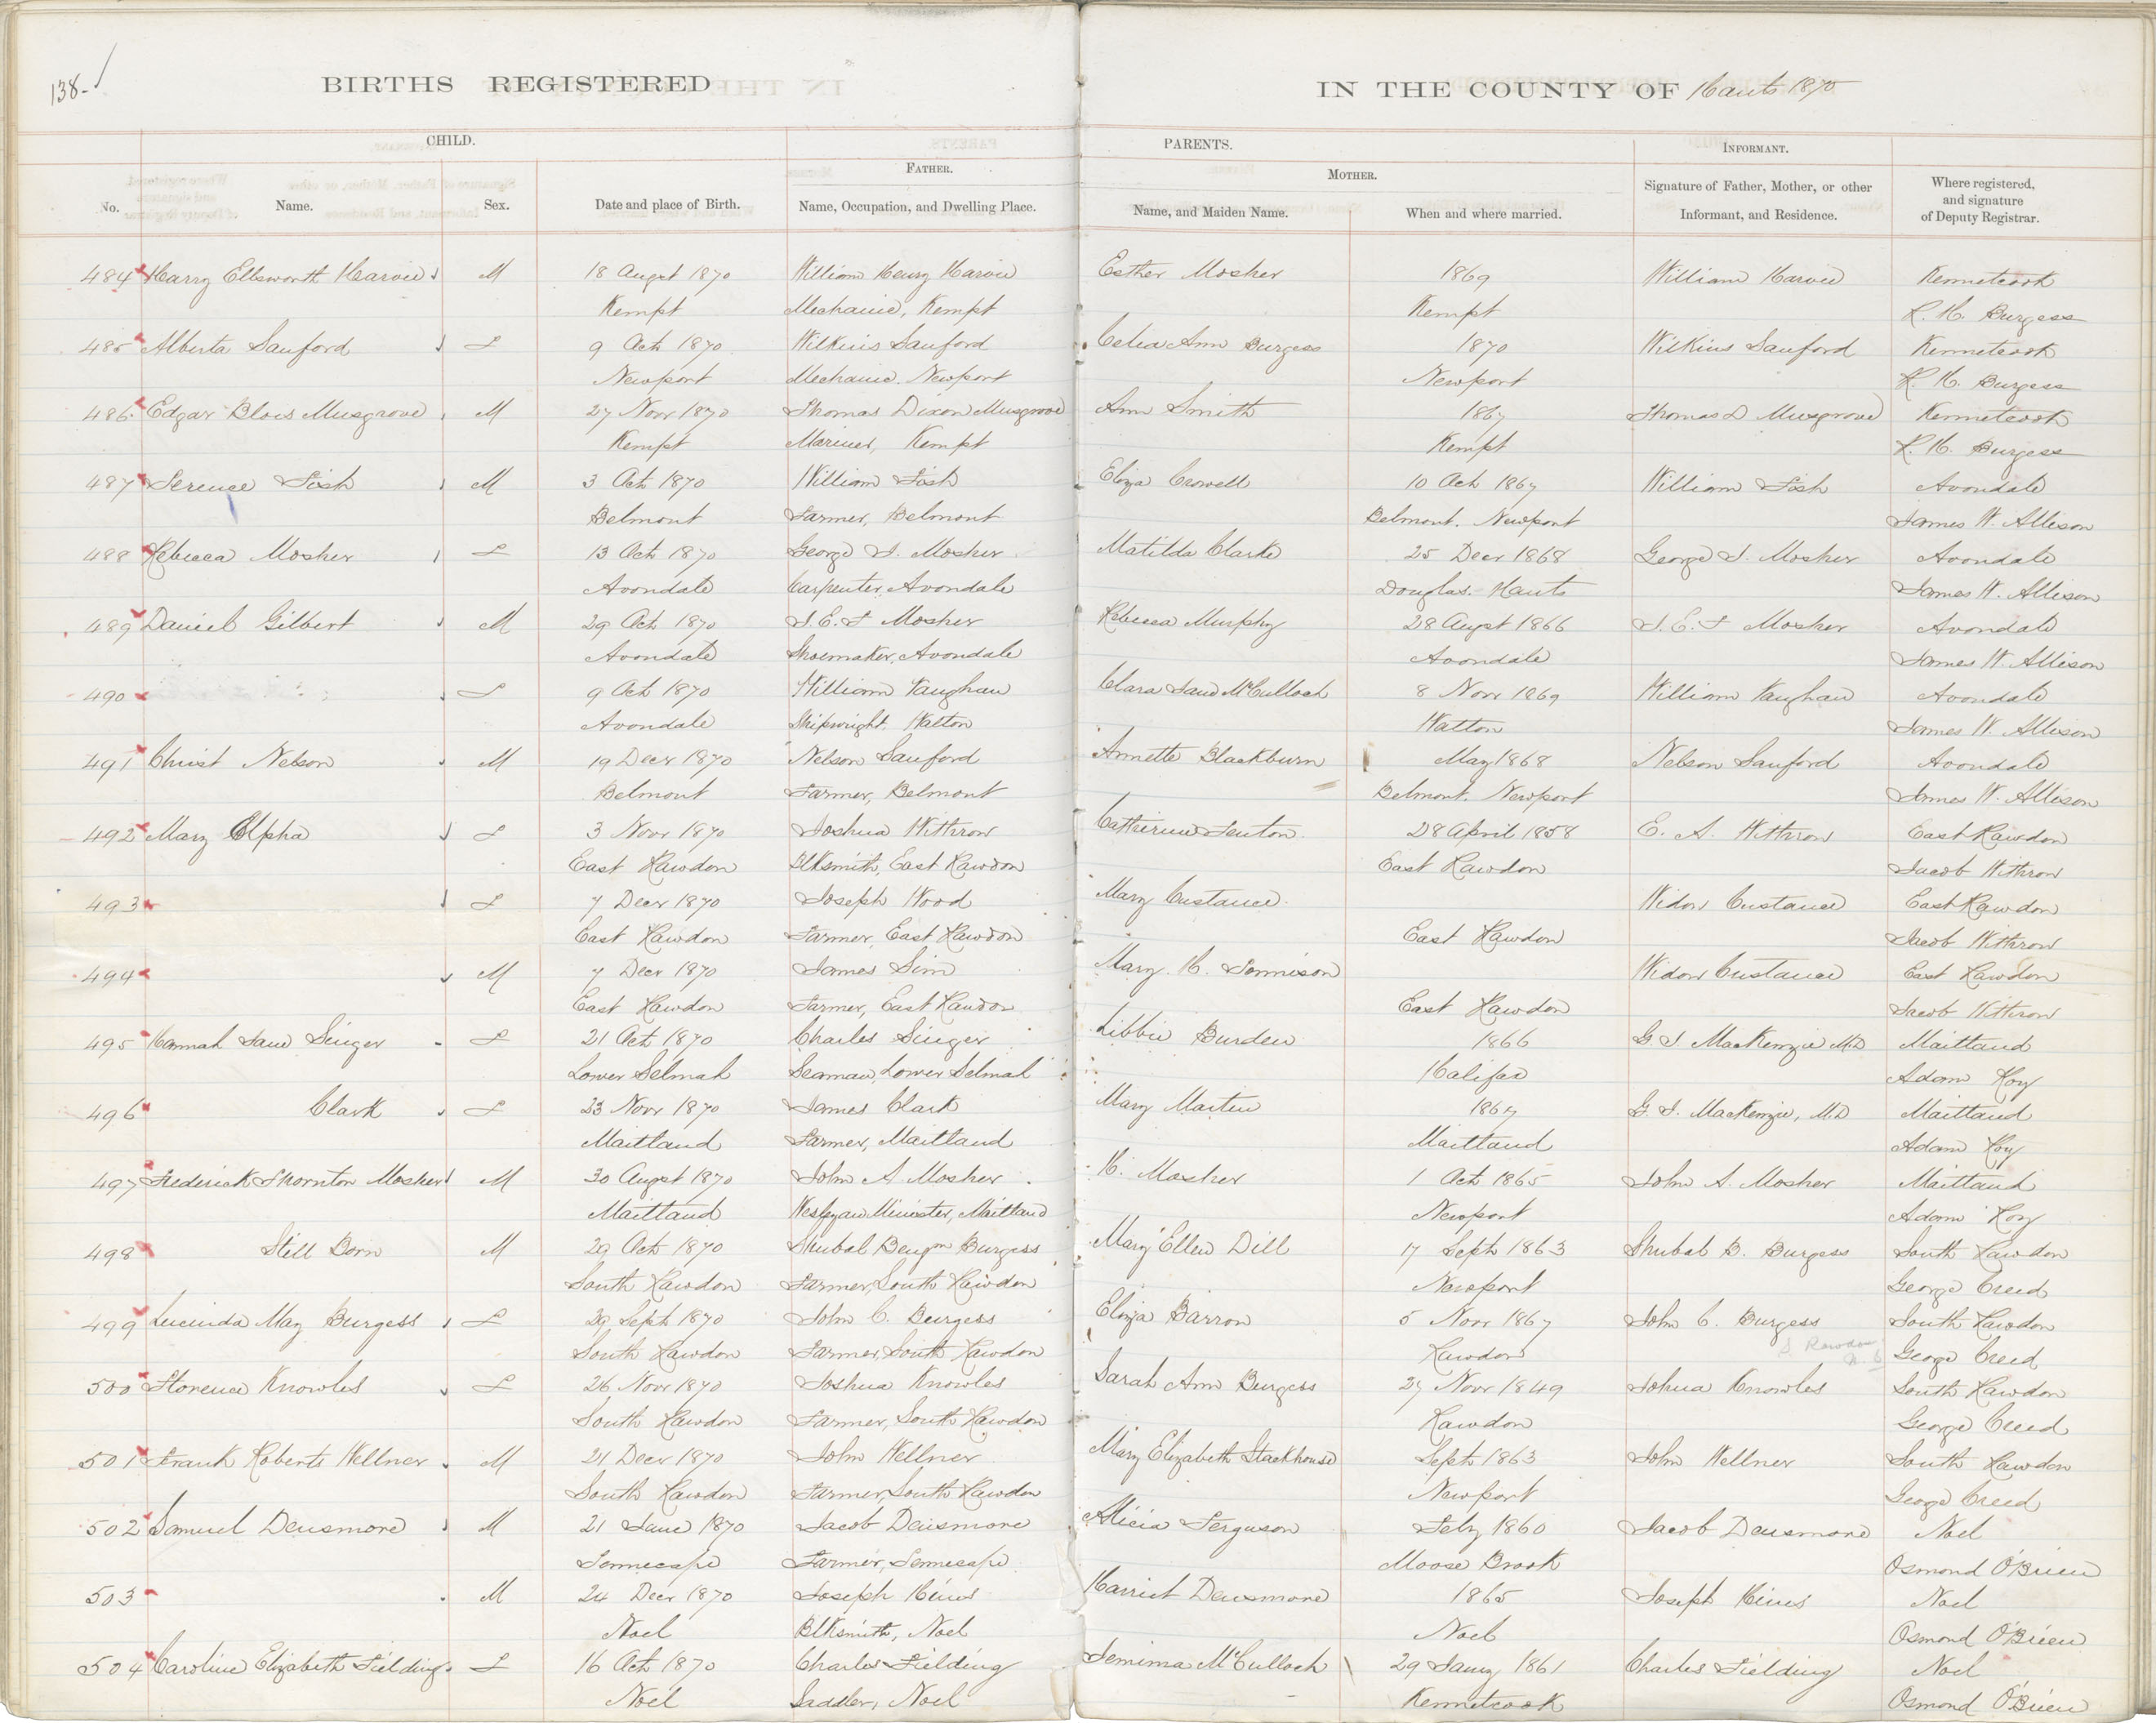 138-
BIRTHS REGISTERED IN THE COUNTY OF Hants 1870
CHILD. PARENTS. INFORMANT.
FATHER. MOTHER.
No. Name. Sex. Date and place of Birth. Name, Occupation, and Dwelling Place. Name, and Maiden Name. When and where married. Signature of Father, Mother, or other Informant, and Residence. Where registered, and signature of Deputy Registrar.
484 Harry Ellsworth Harvie M 18 Augst 1870 William Henry Harvie Esther Mosher 1869 William Harvie Kennetcook
Kempt Mechanic, Kempt Kempt R. H. Burgess
485 Alberta Sanford F 9 Oct 1870 Wilkins Sanford Celia Ann Burgess 1870 Wilkins Sanford Kennetcook
Newport Mechanic. Newport Newport R. H. Burgess
486 Edgar Blois Musgrove M 27 Novr 1870 Thomas Dixon Musgrove Ann Smith 1867 Thomas D Musgrove Kennetcook
Kempt Mariner, Kempt Kempt R. H. Burgess
487 Terence Fish M 3 Oct 1870 William Fish Eliza Crowell 10 Oct 1867 William Fish Avondale
Belmont Farmer, Belmont Belmont. Newport James W. Allison
488 Rebecca Mosher F 13 Oct 1870 George I. Mosher Matilda Clarke 25 Decr 1868 George I. Mosher Avondale
Avondale Carpenter, Avondale Douglas. Hants James W. Allison
489 Daniel Gilbert M 29 Oct 1870 Mosher Rebecca Murphy 28 Augst 1866 Mosher Avondale
Avondale Shoemaker, Avondale Avondale James W. Allison
490 F 9 Oct 1870 William Vaughan Clara Jane McCulloch 8 Novr 1869 William Vaughan Avondale
Avondale Shipwright. Walton Walton James W. Allison
491 Christ Nelson M 19 Decr 1870 Nelson Sanford Annette Blackburn May 1868 Nelson Sanford Avondale
Belmont Farmer, Belmont Belmont. Newport James W. Allison
492 Mary Alpha F 3 Novr 1870 Joshua Withrow Catherine Fenton 28 April 1858 E. A. Withrow East Rawdon
East Rawdon Blksmith, East Rawdon East Rawdon Jacob Withrow
493 F 7 Decr 1870 Joseph Wood Mary Custance Widow Custance East Rawdon
East Rawdon Farmer, East Rawdon East Rawdon Jacob Withrow
494 M 7 Decr 1870 James Sim Mary H. Jonnison Widow Custance East Rawdon
East Rawdon Farmer, East Rawdon East Rawdon Jacob Withrow
495 Hannah Jane Singer F 21 Oct 1870 Charles Singer Libbie Burden 1866 G. I MacKenzie M.D Maitland
Lower Selmah Seaman, Lower Selmah Halifax Adam Roy
496 Clark F 23 Novr 1870 James Clark Mary Martin 1867 G. I. MacKenzie, M.D Maitland
Maitland Farmer, Maitland Maitland Adam Roy
497 Frederick Thornton Mosher M 30 Augst 1870 John A Mosher H. Mosher 1 Oct 1865 John A. Mosher Maitland
Maitland Wesleyan Minister, Maitland Newport Adam Roy
498 Still Born M 29 Oct 1870 Shubal Benjn Burgess Mary Ellen Dill 17 Sept 1863 Shubal B. Burgess South Rawdon
South Rawdon Farmer, South Rawdon Newport George Creed
499 Lucinda May Burgess F 29 Sept 1870 John C. Burgess Eliza Barron 5 Novr 1867 John C. Burgess South Rawdon
South Rawdon Farmer, South Rawdon Rawdon S Rawdon George Creed
500 Florence Knowles F 26 Novr 1870 Joshua Knowles Sarah Ann Burgess 27 Novr 1849 Johua Knowles South Rawdon
South Rawdon Farmer, South Rawdon Rawdon George Creed
501 Frank Roberts Wellner M 21 Decr 1870 John Wellner Mary Elizabeth Stackhouse Sept 1863 John Wellner South Rawdon
South Rawdon Farmer, South Rawdon Newport George Creed
502 Samuel Densmore M 21 June 1870 Jacob Densmore Alicia Ferguson Feby 1860 Jacob Densmore Noel
Tennecape Farmer, Tennecape Moose Brook Osmond O'Brien
503 M 24 Decr 1870 Joseph Hines Harriet Densmore 1865 Joseph Hines Noel
Noel Blksmith, Noel Noel Osmond O'Brien
504 Caroline Elizabeth Fielding F 16 Oct 1870 Charles Fielding Jemima McCulloch 29 Jany 1861 Charles Fielding Noel
Noel Saddler, Noel Kennetcook Osmond O'Brien